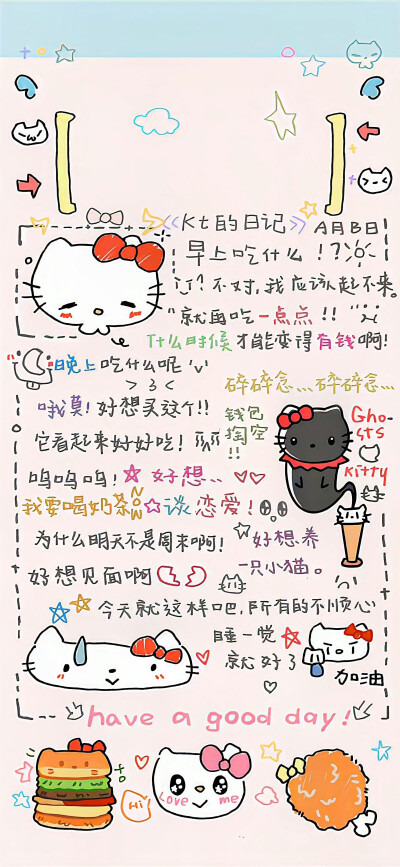 《Kt的日记》 A月B日
早上吃什么!?
不对,我应该起不来。
就再吃一点点!!
什么时候才能变得有钱啊!
晚上吃什么呢 'v'
>3<
碎碎念...碎碎念...
哦莫!好想买这个!!
钱包
掏空
!!
Gho-
sts
Kitty
它看起来好好吃!
呜呜呜!好想...
我要喝奶茶 谈恋爱!
为什么明天不是周末啊!
好想养
一只小猫。
好想见面啊
今天就这样吧,所有的不顺心
睡一觉
就好了
加油
have a good day!
Hi
Love me